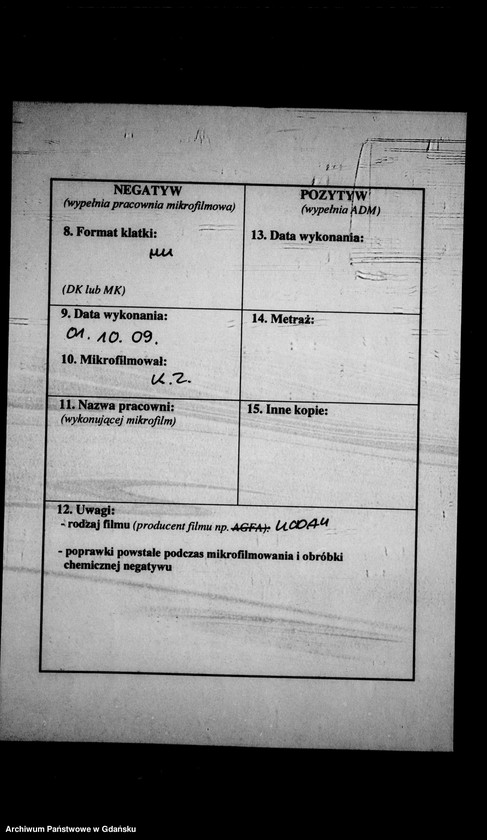 NEGATYW
(wypełnia pracownia mikrofilmowa)
8. Format klatki:
MK
(DK lub MK)
9. Data wykonania:
01.10.09.
10. Mikrofilmował:
K.Z.
11. Nazwa pracowni:
(wykonującej mikrofilm)
POZYTYW
(wypełnia ADM)
13. Data wykonania:
14. Metraż:
15. Inne kopie:
12. Uwagi:
- rodzaj filmu (producent filmu np. AGFA): KODAK
- poprawki powstałe podczas mikrofilmowania i obróbki
chemicznej negatywu
Archiwum Państwowe w Gdańsku